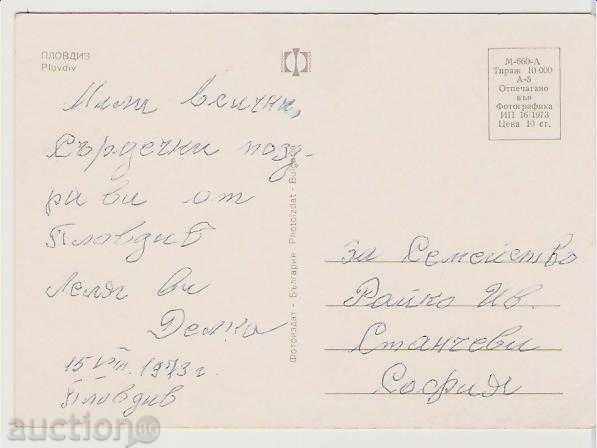 ПЛОВДИВ
Plovdiv
М-660-А
Тираж 10 000
А-5
Отпечатано
във
Фотографика
ИП 16/1973
Цена 10 ст.
Мили всички,
Сърдечни позд-
рави от
Пловдив
Леля ви
Делка
15 VIII. 1973 г.
Пловдив
Фотоиздат - България Photoizdat - Bulgaria
за Семейство
Райко Ив.
Станчеви
София
auction.bg